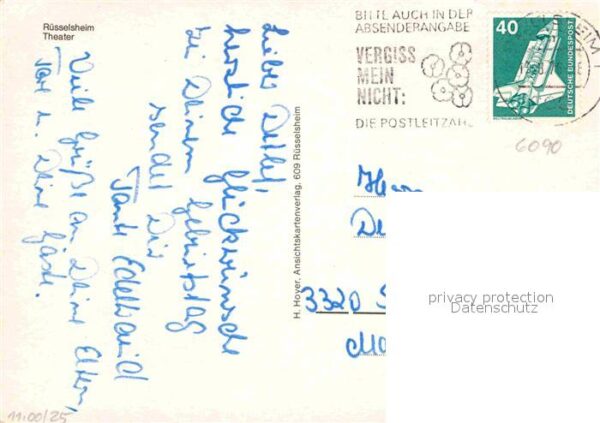 Rüsselsheim
Theater
Lieber Detlef,
herzliche Glückwünsche
zu Deinem Geburtstag
sendet Dir
Tante Edeltraud
Viele Grüße an Deine Eltern,
u. Deine Gäste.
H. Hoyer, Ansichtskartenverlag, 609 Rüsselsheim
BITTE AUCH IN DER
ABSENDERANGABE
VERGISS
MEIN
NICHT:
DIE POSTLEITZAHL
40
DEUTSCHE BUNDESPOST
6090
Herrn
De
3320 S
privacy protection
Datenschutz
11:00/25